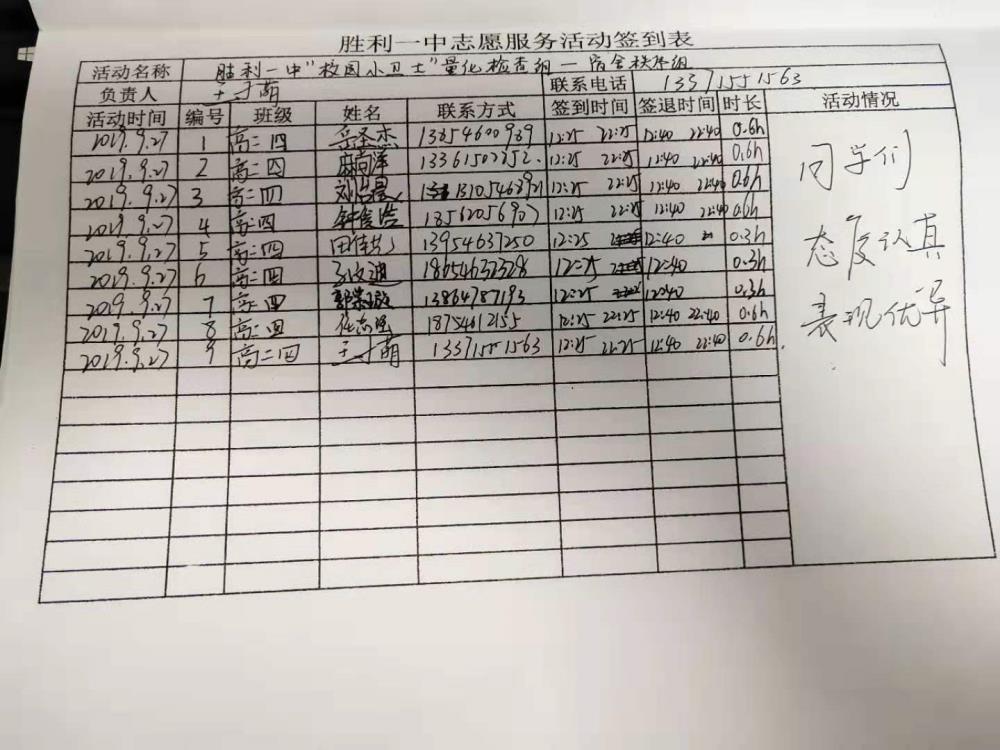 胜利一中志愿服务活动签到表
活动名称 胜利一中"校园小卫士"量化检查组一宿舍秩序组
负责人 联系电话 13371551563
活动时间 编号 班级 姓名 联系方式 签到时间 签退时间 时长 活动情况
2019.9.27 1 高二四 岳圣杰 13854600939 12:25 22:25 12:40 22:40 0.6h
2019.9.27 2 高二四 麻向泽 13361502252. 12:25 22:25 12:40 22:40 0.6h
2019.9.27 3 高二四 12:25 22:25 12:40 22:40 0.6h
2019.9.27 4 高二四 18562056907 12:25 22:25 12:40 22:40 0.6h
2019.9.27 5 高二四 13954637250 12:25 12:40 0.3h
2019.9.27 6 高二四 18654632328 12:25 12:40 0.3h
2019.9.27 7 高二四 13864787193 12:25 12:40 0.3h
2019.9.27 8 高二四 18754612155 12:25 22:25 12:40 22:40 0.6h
2019.9.27 9 高二四 13371551563 12:25 22:25 12:40 22:40 0.6h
同学们
态度认真
表现优异